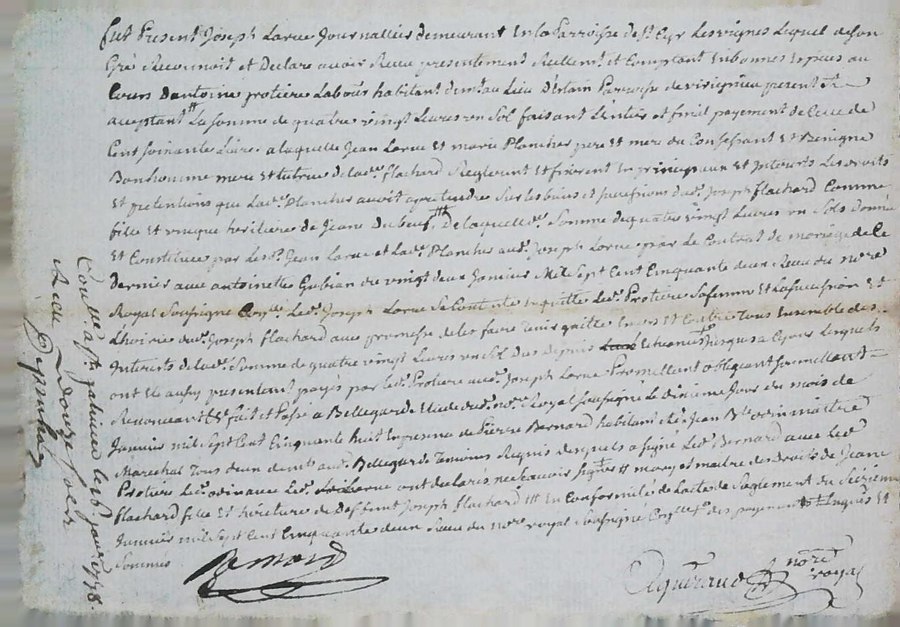 fut Present Joseph Larue Journallier demeurant En la Parroisse de St. Cyr Les vignes Lequel de son
Gré Reconnoit et Declare avoir Receu presentement Reellemt. et Comptant En bonnes Espèces au
Cours D'antoine protiere Labour. habitant demt. au Lieu Parroisse de present Et
acceptant La somme de quatre vingt Livres en Sol faisant L'entier et final payement de Celle de
Cent soixante Livres a laquelle Jean Larue et marie Plancher pere et mere du Confessant Et Benigne
Bonhomme mere Et tutrice de lad. flachard Reglerent Et fixerent En principaux Et Interests Les droits
Et pretentions que Lad. Plancher avoit a pretendre Sur les biens et successions dud. Joseph flachard Comme
fille et unique heritiere de Jeane Dubeuf De laquelle de. Somme de quatre vingt Livres en Sols donnée
Et Constituée par Lesd. Jean Larue et Lad. Plancher aud. Joseph Larue par le Contrat de mariage de Ce
Dernier avec antoinette Gubian du vingt deux Janvier Mil Sept Cent Cinquante deux Receu du notre.
Royal Soussigné Led. Joseph Larue Se Contente Et quitte Led. Protiere Sa femme Et La succession Et
L'hoirie dud. Joseph flachard avec promesse de les faire tenir quittes Envers Et Contre Tous Ensemble des
Interests de lad. Somme de quatre vingt Livres en Sol Dus depuis Jusques a Ce jour Lesquels
ont Eté aussy presentemt. payés par led. Protiere aud. Joseph Larue Promettant obligeant Soumettant
Renonceant Et. fait et Passé a Bellegarde Etude dud. Nore. Royal soussigné Le dixieme Jour du mois de
Janvier mil Sept Cent Cinquante huit En presence de Pierre Bernard habitant et Jean Bte. odin maitre
Marechal Tous deux demts. aud. Bellegarde Temoins Requis desquels a signé Led. Bernard avec Led.
Protiere Led. odin avec Led. Larue ont declarés ne Scavoir signer mary et maitre des Droits de Jeane
flachard fille Et heritiere de Deffunt Joseph flachard En Conformité de L'acte de Reglement du Seizieme
Janvier mil Sept Cent Cinquante deux Receu du nore. royal Soussigné des payements Et
Sommes
Bernard
nore. royal
Conlle. a St. galmier le 18 Janvr. 1758.
Receu Douze Sols